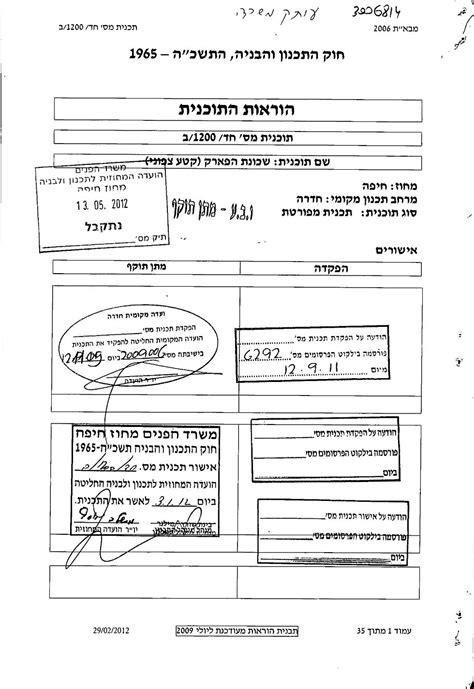 עותק משרדי 3006814
תכנית מס' חד/1200/ב
מבא"ת 2006
חוק התכנון והבניה, התשכ"ה – 1965
הוראות התוכנית
תוכנית מס' חד/1200/ב
שם תוכנית: שכונת הפארק (קטע צפוני)
משרד הפנים
הועדה המחוזית לתכנון ולבניה
מחוז חיפה
13.05.2012
נתקבל
תיק מס'
מחוז: חיפה
מרחב תכנון מקומי: חדרה
סוג תוכנית: תכנית מפורטת
מתן תוקף
אישורים
הפקדה
מתן תוקף
ועדה מקומית חדרה
הפקדת תכנית מס'
הועדה המקומית החליטה להפקיד את התכנית
בישיבתה מס' 2009006 ביום
יו"ר הועדה
הודעה על הפקדת תכנית מס'
פורסמה בילקוט הפרסומים מס' 6292
מיום 12.9.11
משרד הפנים מחוז חיפה
חוק התכנון והבניה תשכ"ה-1965
אישור תכנית מס. חד/1200/ב
הועדה המחוזית לתכנון ולבניה החליטה
ביום 3.1.12 לאשר את התכנית.
יו"ר הועדה המחוזית
הודעה על הפקדת תכנית מס'
פורסמה בילקוט הפרסומים מס'
ביום
הודעה על אישור תכנית מס'
פורסמה בילקוט הפרסומים מס'
ביום
עמוד 1 מתוך 35
תבנית הוראות מעודכנת ליולי 2009
29/02/2012